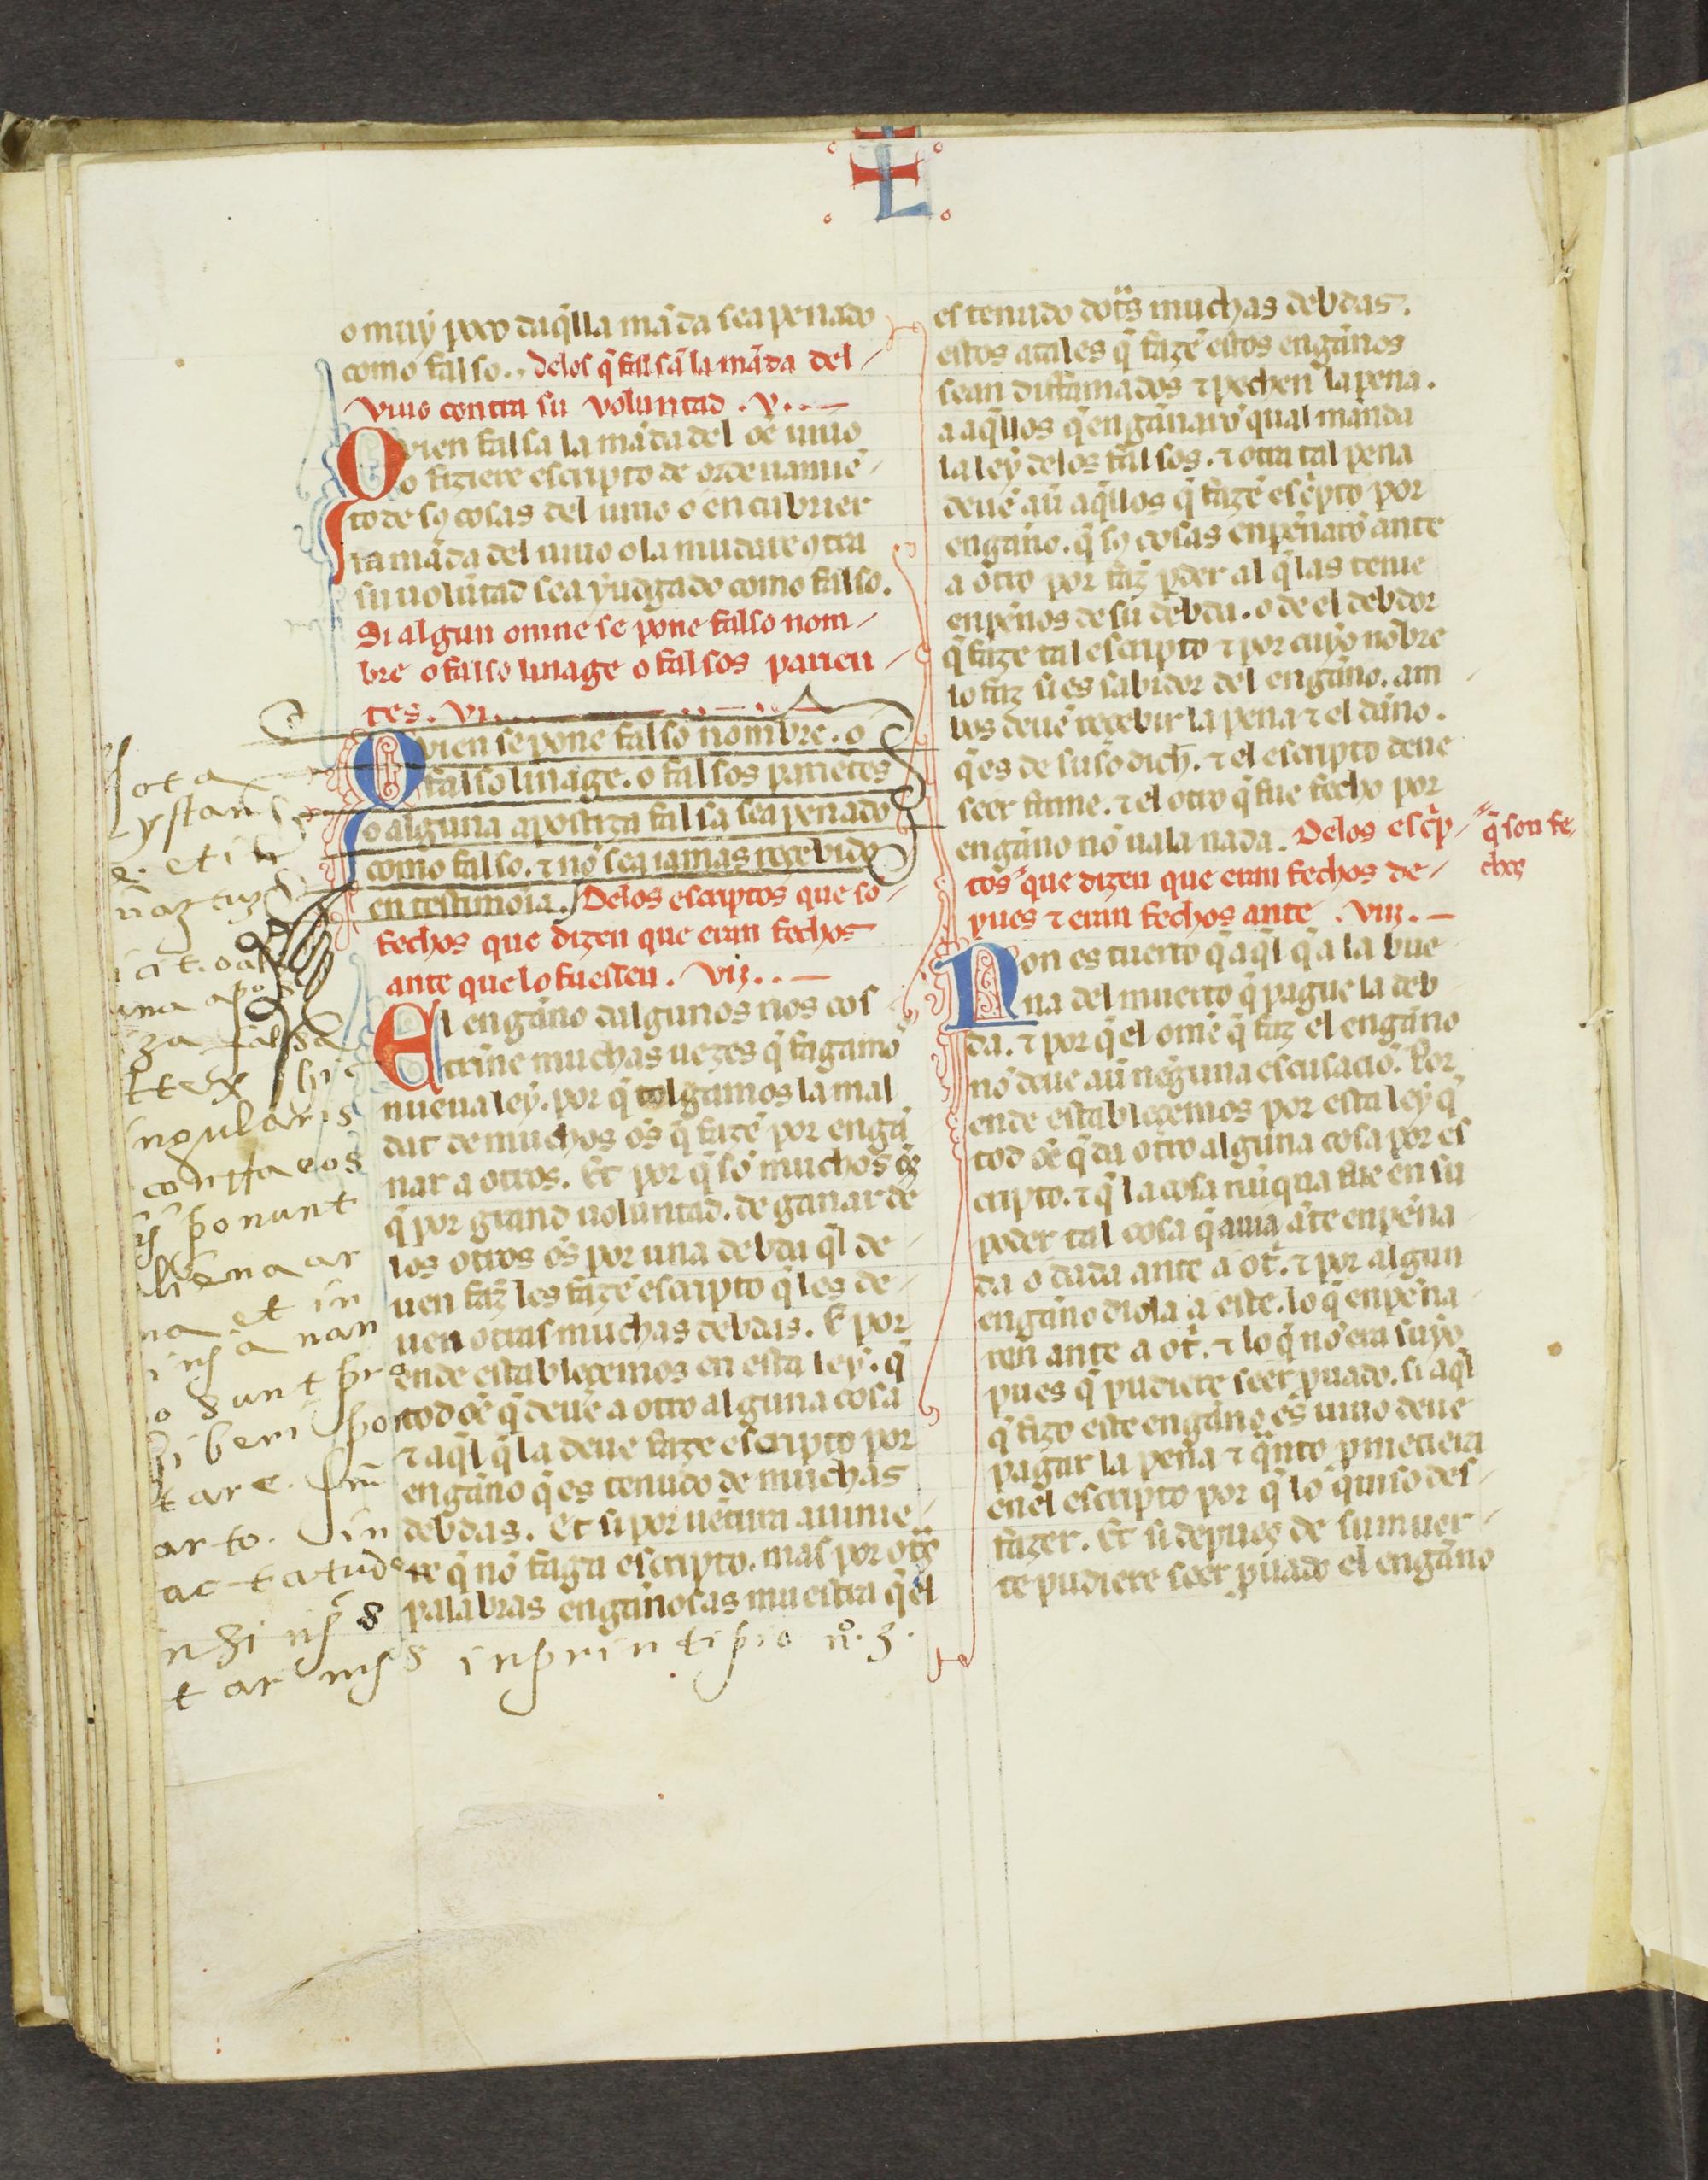 L
o muy poco daq̃lla mãda sea penado
como falso. Delos q̃ falsã la mãda del
viuo contra su voluntad. v.
Quien falsa la mãda del oē uiuo
o fiziere escripto de ordenamiē
to de sꝯ cosas del uiuo o encubrier
ra mãda del uiuo o la mudare ꝯtra
su uolũtad sea yudgado como falso.
Si algun omne se pone falso nom
bre o falso linage o falsos parien
tes. vi.
Quien se pone falso nombre. o
falso linage. o falsos pariẽtes
o alguna apostiza falsa sea penado
como falso. ⁊ nõ sea iamas reçebido
en testimoĩa. Delos escriptos que sõ
fechos que dizen que eran fechos
ante que lo fuessen. vij.
El engãno dalgunos nos cos
trine muchas uezes q̃ fagamõ
nueua ley. por q̃ tolgamos la mal
dat de muchos oñs q̃ fazẽ por engã
nar a otros. Et por q̃ sõ muchos
q̃ por grand uoluntad. de ganar de
los otros oñs por una debda q̃l de
uen faz̃ les fazẽ escripto q̃ les de
uen otras muchas debdas. E por
ende estableçemos en esta ley. q̃
tod oē q̃ deue a otro alguna cosa
⁊ aq̃l q̃ la deue faze escripto por
engãno q̃ es tenudo de muchas
debdas. Et si por uẽtura auinie
re q̃ nõ faga escripto. mas por otr̃s
palabras engãnosas muestra q̃ el
es tenudo dotr̃s muchas debdas.
estos atales q̃ fazẽ estos engãnos
sean diffamados ⁊ pechen la pena.
a aq̃llos q̃ engãnarõ qual manda
la ley delos falsos. ⁊ otra tal pena
deuẽ aũ aq̃llos q̃ fazẽ esc̃pto por
engãno. q̃ sꝯ cosas enpẽnarõ ante
a otro por faz̃ ꝑder al q̃ las tenie
enpẽnos de su debda. o de el debdor
q̃ faze tal escripto ⁊ por cuyo nõbre
lo faz si es sabidor del engãno. am
bos deuẽ reçebir la pena ⁊ el dãno.
q̃ es de suso dich̃. ⁊ el escripto deue
seer firme. ⁊ el otro q̃ fue fecho por
engãno nõ uala nada. Delos esc̃p
q̃ son fe
chos
tos que dizen que eran fechos de
pues ⁊ eran fechos ante. viij.
Non es tuerto q̃ aq̃l q̃ a la bue
na del muerto q̃ pague la deb
da. ⁊ por q̃ el omẽ q̃ faz el engãno
nõ deue aũ neguna escusaciõ. Por
ende establecemos por esta ley q̃
tod oē q̃ da otro alguna cosa por es
cripto. ⁊ q̃ la cosa nũqua fue en su
poder tal cosa q̃ auia ãte enpẽna
da o dada ante a ot̃. ⁊ por algun
engãno diola a este. lo q̃ enpẽna
ron ante a ot̃. ⁊ lo q̃ nõ era suyo
pues q̃ pudiere seer ꝓuado. si aq̃l
q̃ fizo este engãno es uiuo deue
pagar la pena ⁊ q̃nto ꝓmetiera
enel escripto por q̃ lo quiso des
fazer. Et si depues de su muer
te pudiere seer ꝓuado el engãno
ota
e. et in
una apos
za falsa
ingularis
ponunt
aliena ar
ma et in
sunt
iberi
tare.
arto. in
in printipio nº. 3.